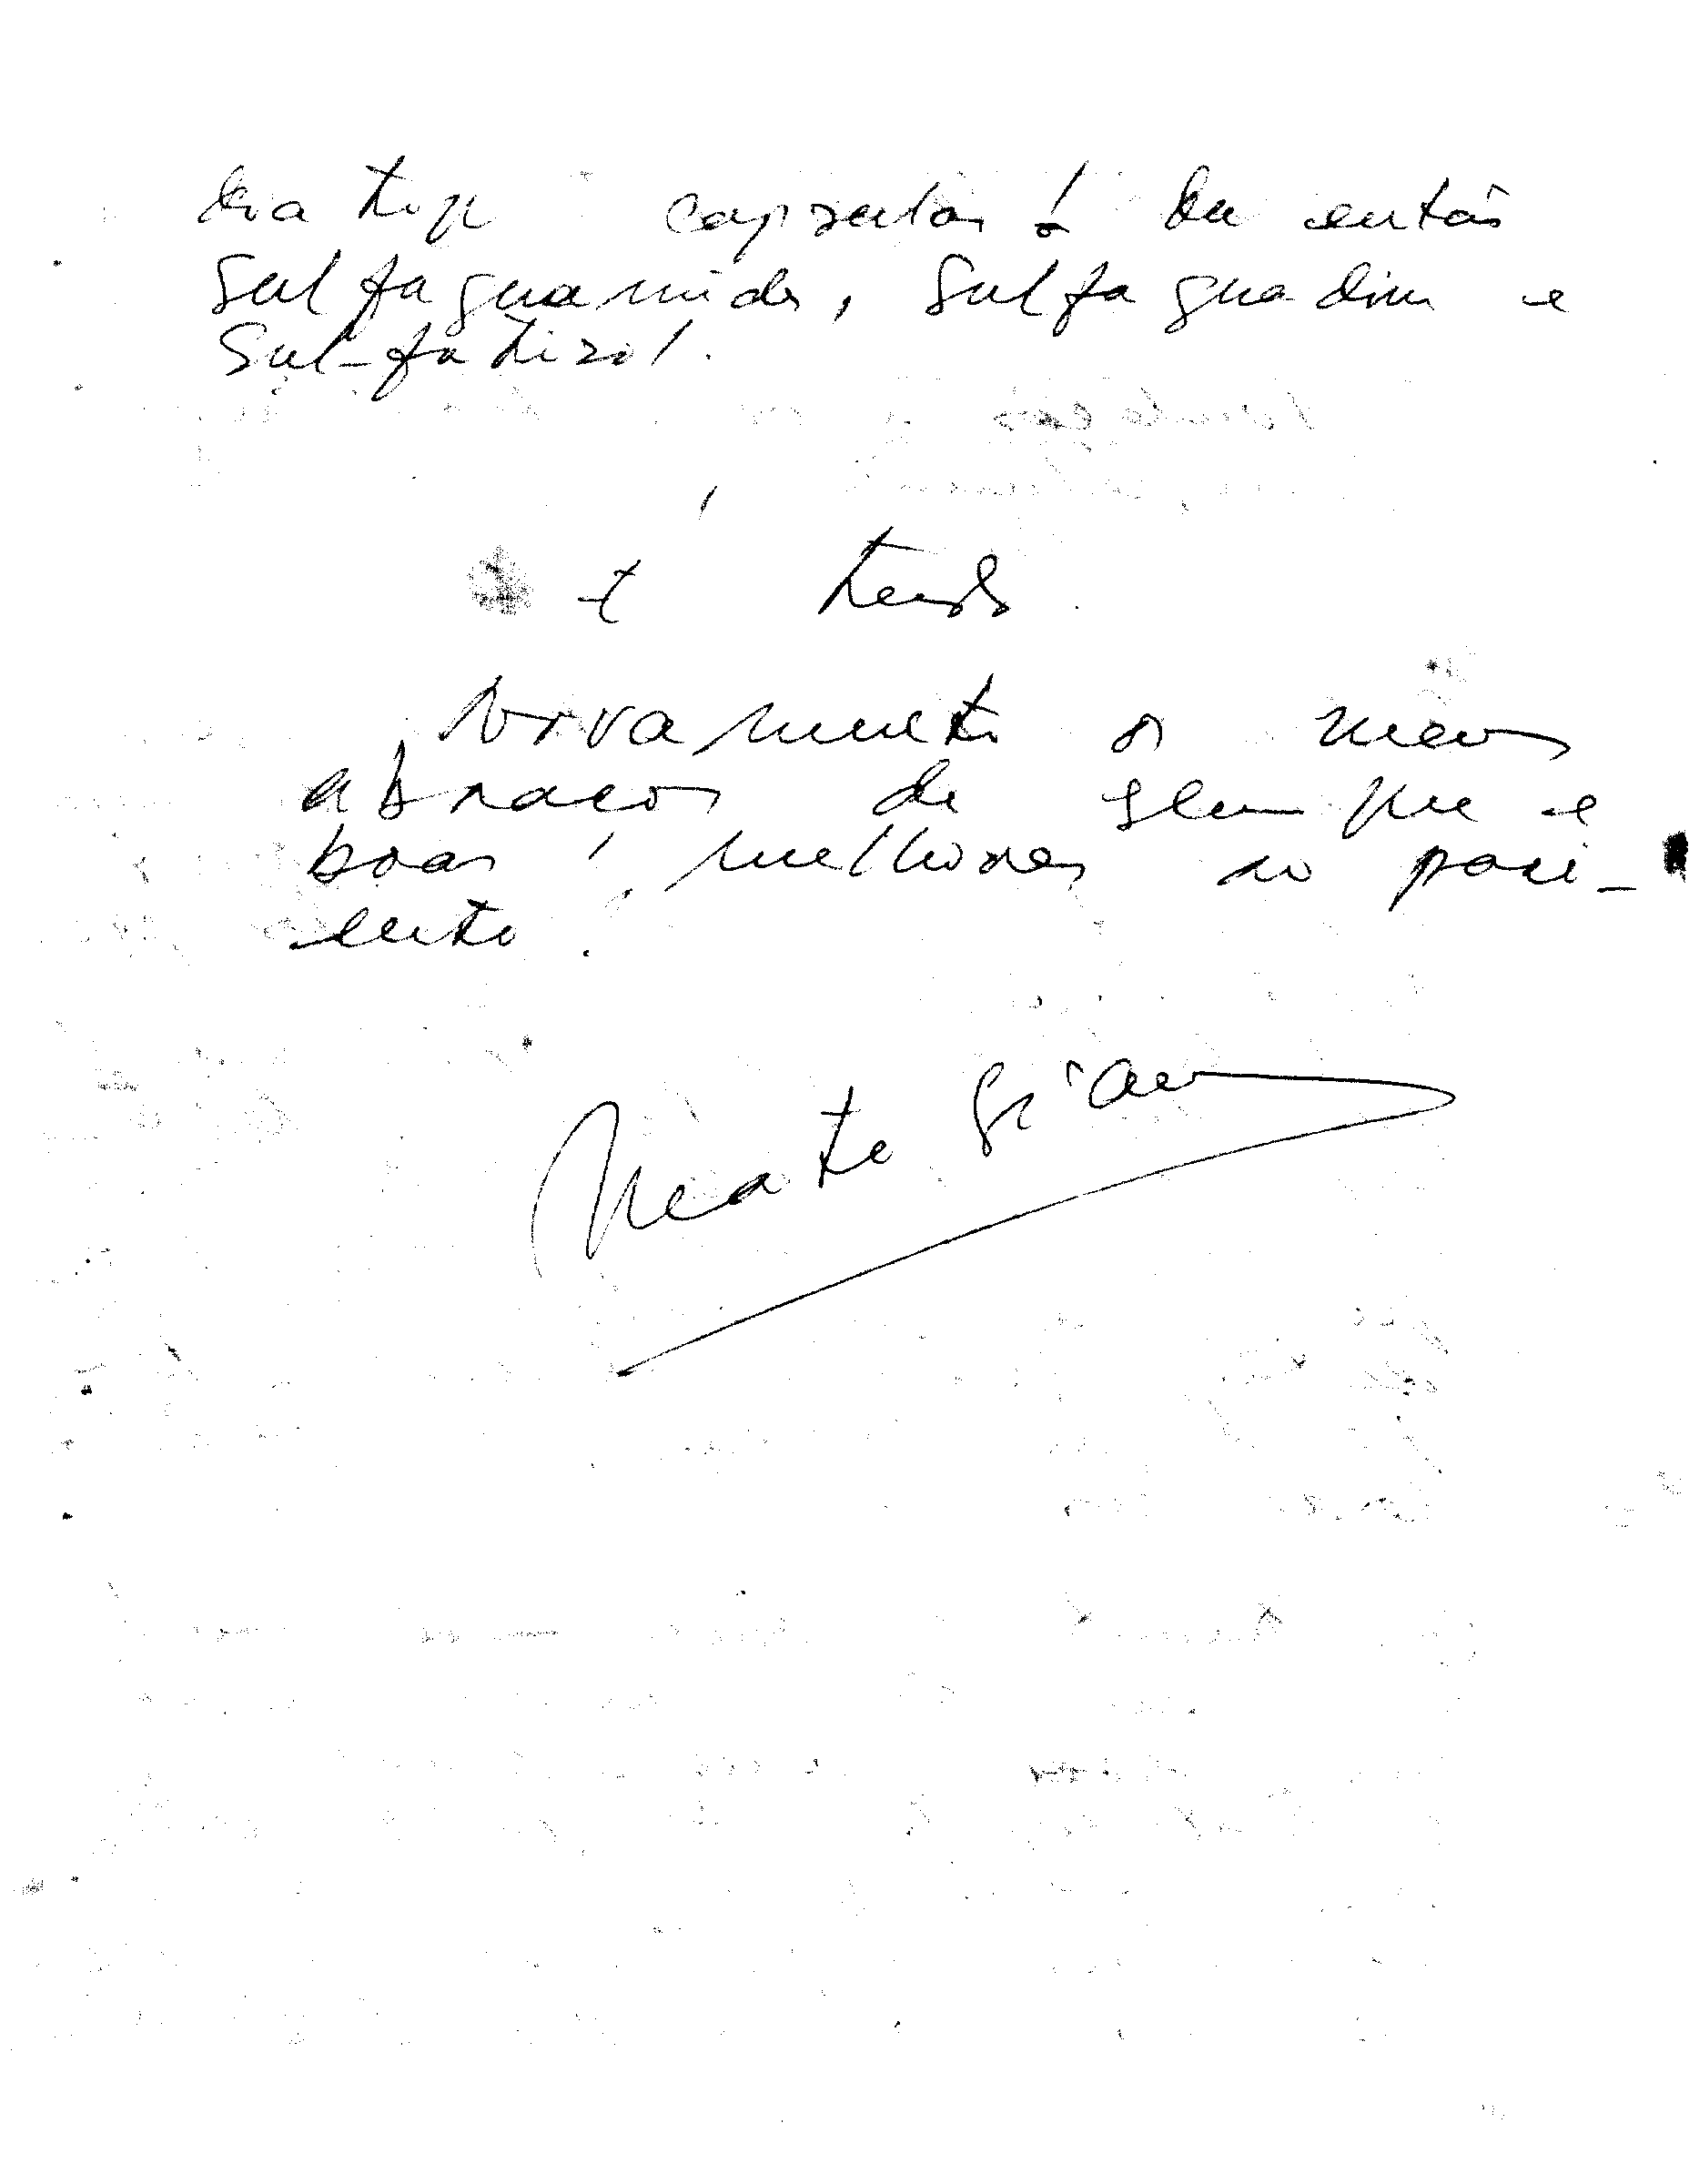 capsulas! Ou então
Sulfaguanida, Sulfaguadina e
Sulfatizol.
É tudo.
Novamente os meus
abraços de sempre e
boas melhoras ao paci-
ente.